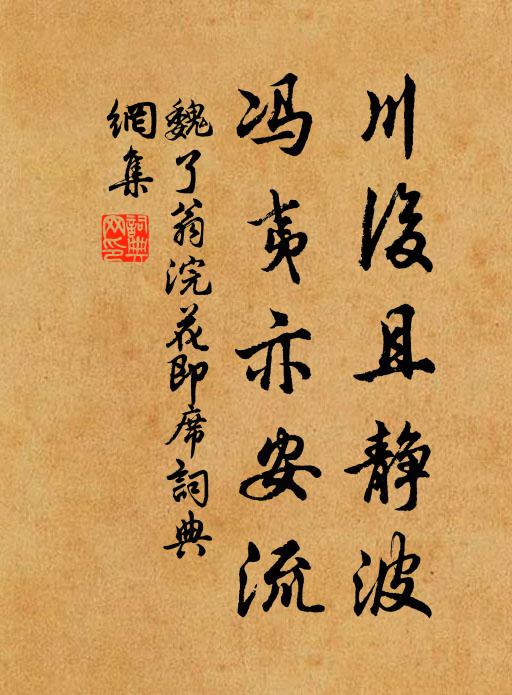 川後且静波
冯夷亦安流
魏了翁浣花即席詞典
網集
詞典網印